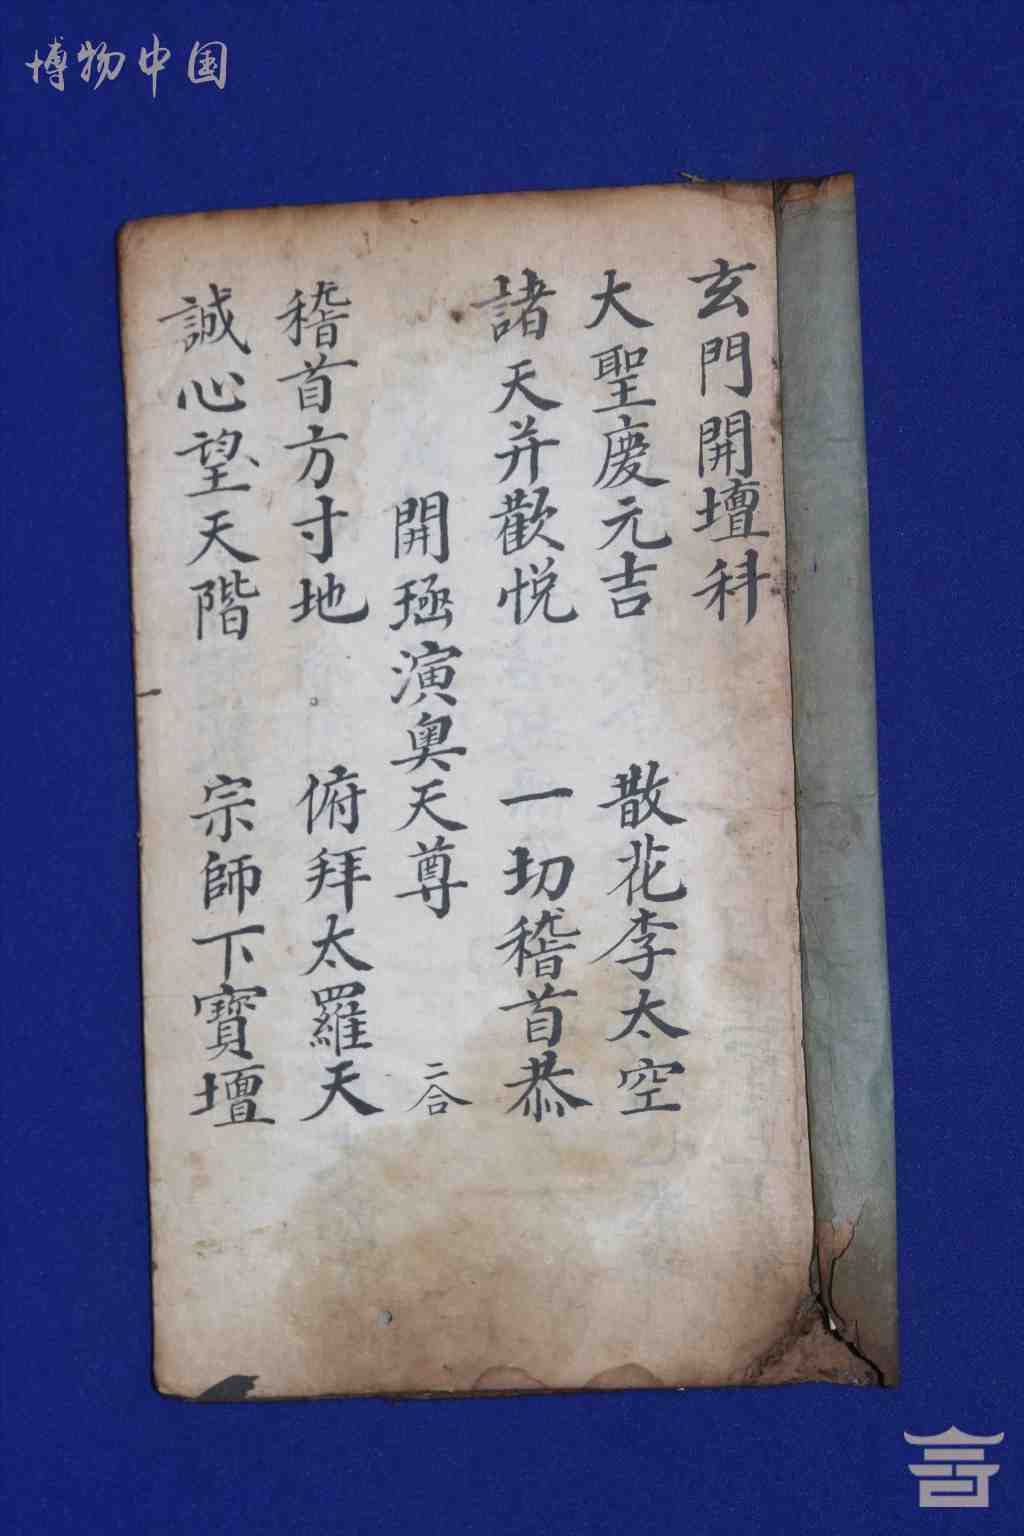 博物中国
玄門開壇科
大聖慶元吉 散花李太空
諸天并歡悦 一切稽首恭
開極演奧天尊 二合
稽首方寸地 俯拜太羅天
誠心望天階 宗師下寶壇